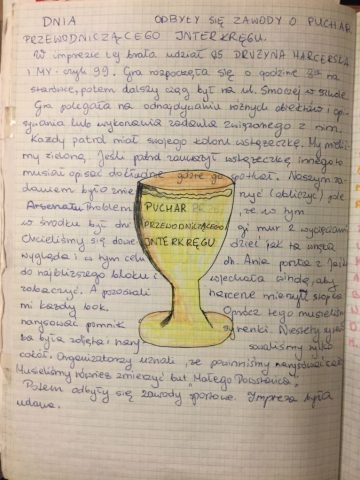 DNIA ODBYŁY SIĘ ZAWODY O PUCHAR
PRZEWODNICZĄCEGO INTERKRĘGU.
W imprezie tej brała udział 95 DRUŻYNA HARCERSKA
i MY czyli 99. Gra rozpoczęła się o godzinie na
starówce, potem dalszy ciąg był na ul. Smoczej w szkole
Gra polegała na odnajdywaniu różnych obiektów i opi
sywania lub wykonania zadania związanego z nim.
Każdy patrol miał swojego koloru wstążeczkę. My mieliś
my zieloną. Jeśli patrol zauważył wstążeczkę innego to
musiał opisać dokładnie gdzie go spotkał. Naszym za
daniem było zmie nyć (obliczyć) pole
Arsenału. Problem że w tym
w środku był dni gi mur z wycięciami
Chcieliśmy się dowie dzieć jak ta wnęka
wygląda i w tym celu dh. Ania poszła z
do najbliższego bloku i wjechała windą, aby
zobaczyć. A pozostali harcerze mierzyli stopka
mi każdy bok. Oprócz tego musieliśmy
narysować pomnik syrenki. Niestety syren
ka była zdjęta i nary sowaliśmy tylko
cokół. Organizatorzy uznali, że powinniśmy narysować całą.
Musieliśmy również zmierzyć but "Małego Powstańca".
Potem odbyły się zawody sportowe. Impreza była
udana.
PUCHAR
PRZEWODNICZĄCEGO
INTERKRĘGU